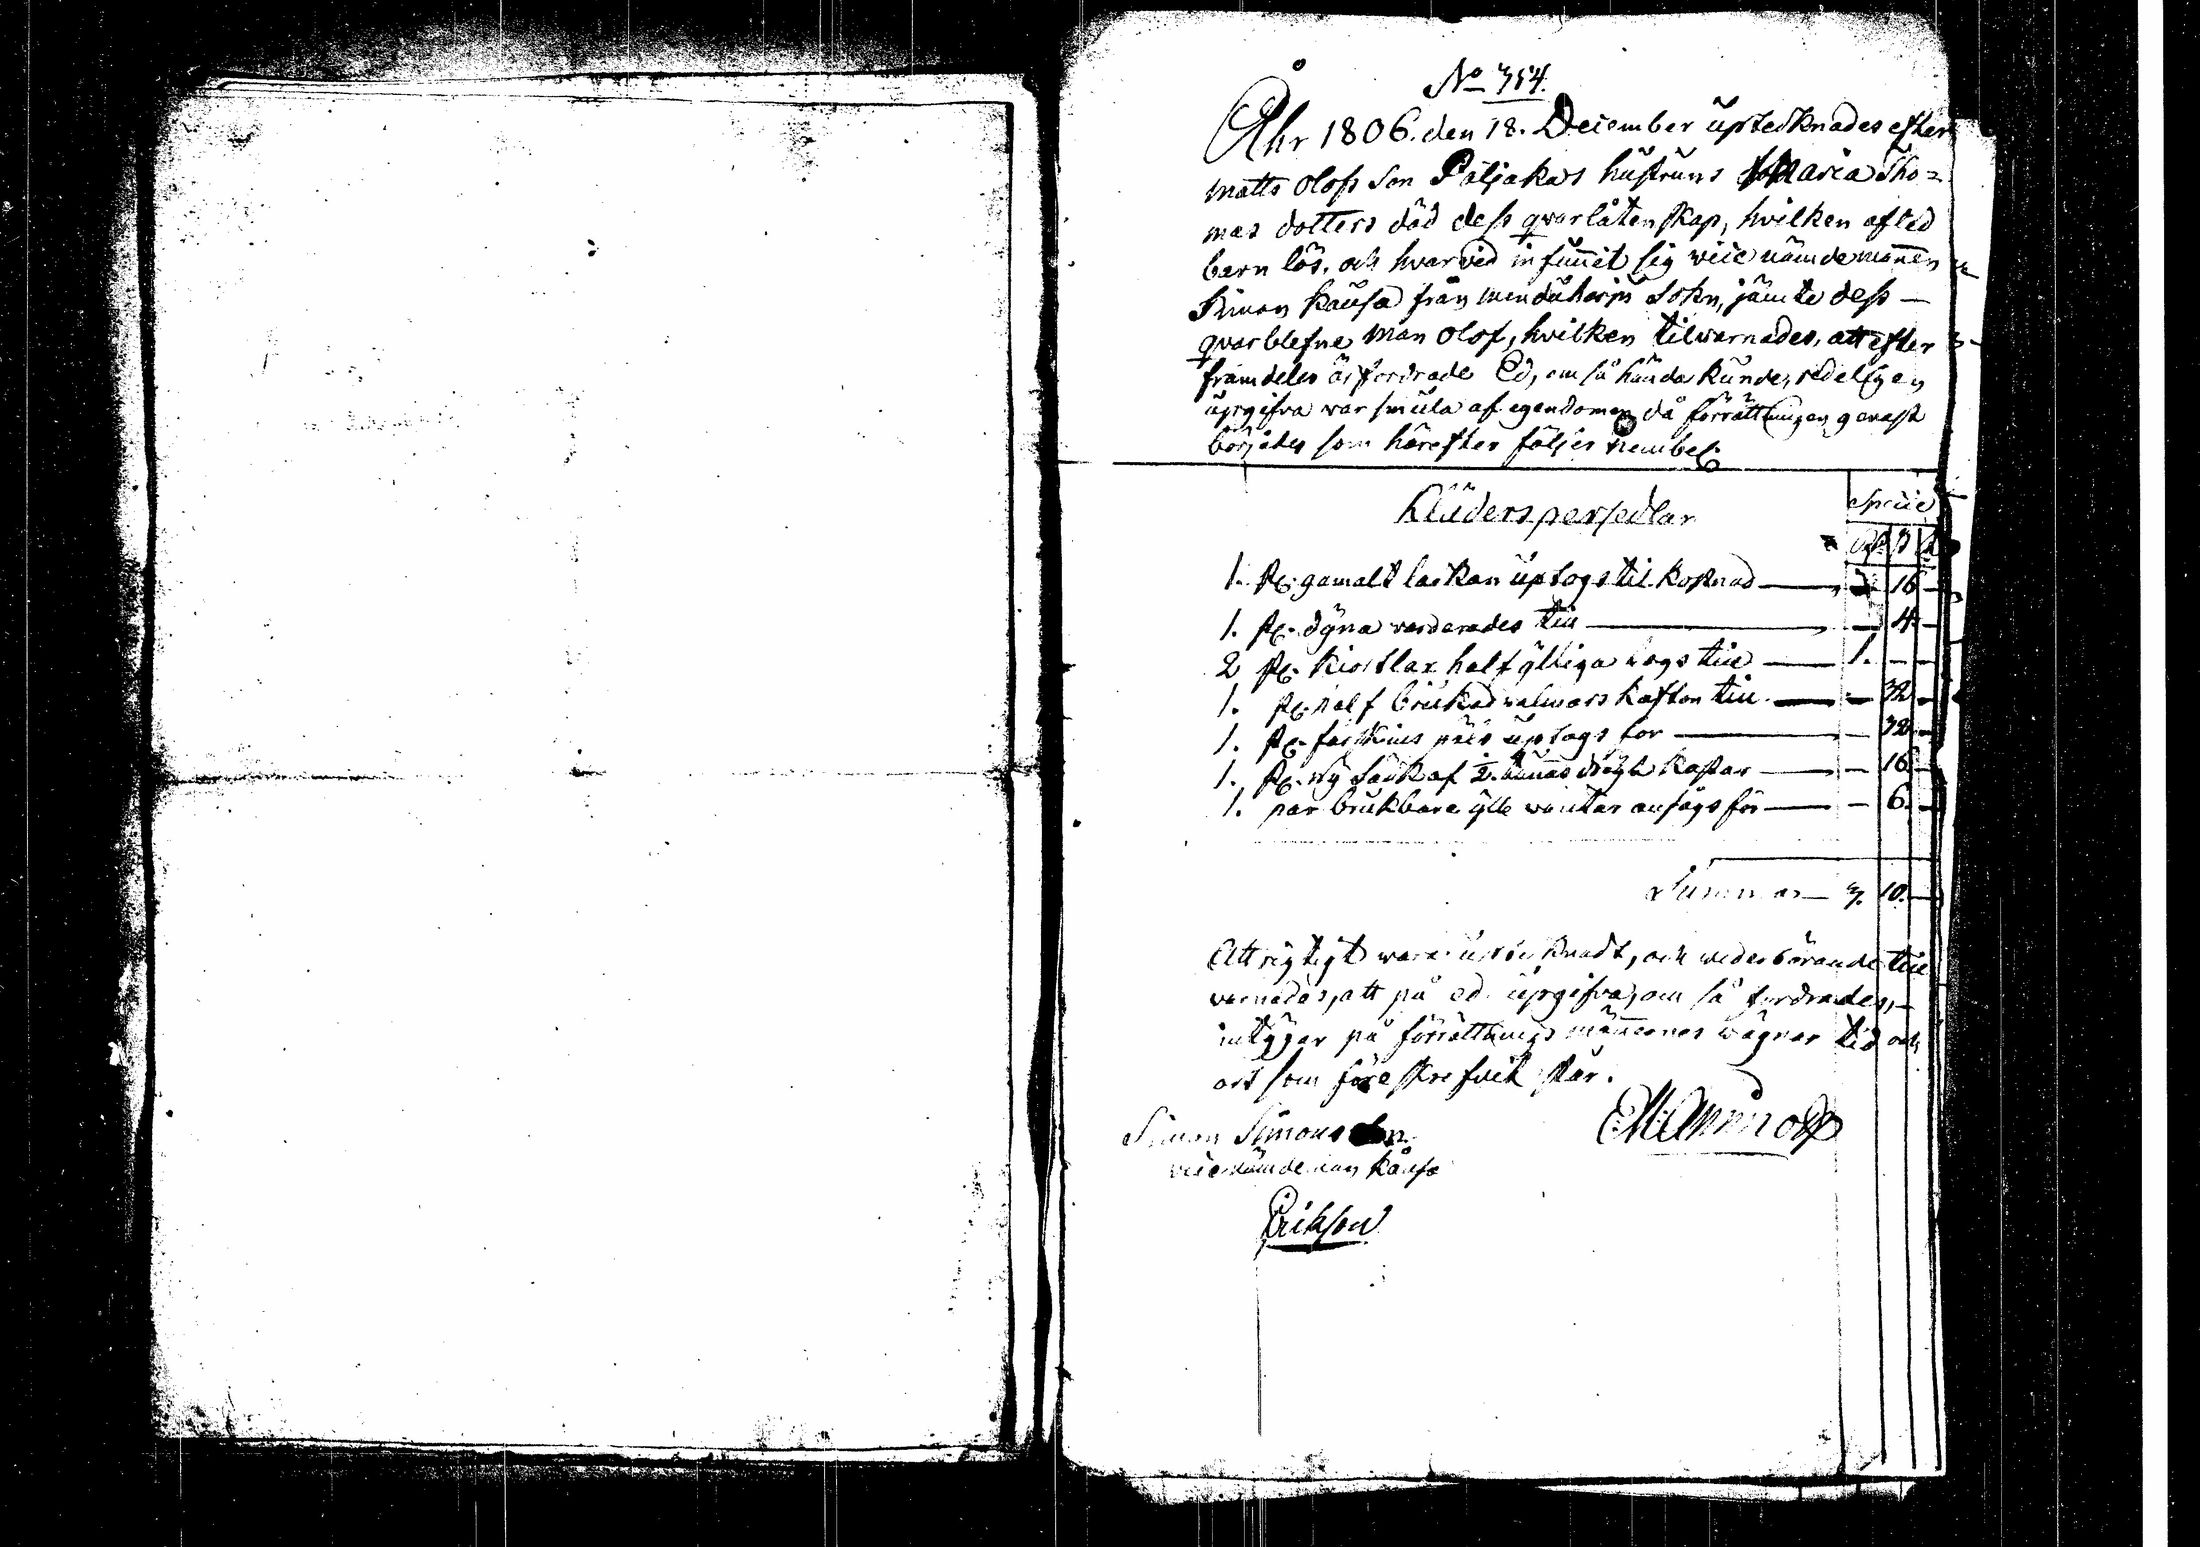 No 354.
Åhr 1806. den 18. December uptecknades efter
Matts Olofs Son Paljakas hustrus Maria Tho=
mas dotters död dess qwarlåtenskap, hvilken afled
barn lös, och hvarvid infunnit sig vice nämdemannen
Simon Kausa från Sokn, jämte dess
qvarblefne Man Olof, hvilken tilwarnades, att efter
framdeles Ed, om så hända kunde, redeligen
upgifva war smula af egendomen då förrättningen genast
börjades som härefter följer nembel:
Kläders persedlar
Specie
Rd ß
1. st: gamalt lackan uptogs til kostnad — 16 —
1. st: dÿna värderades till — 4 —
2 st: Kiortlar half gilltiga togs till — 1. — —
1. st: half brukad walmars kaftan till — 32 —
1. st: päls uptogs för — 32 —
1. st: nÿ säck af ½ kastar — 16 —
1. par brukbara ÿlle wantar ansågs för — 6. —
Summa — 3. 10. —
Att rigtigt wara uptecknadt, och wederbörande till
varnades, att på ed upgifva, om så fordrades, —
intÿgar på förrättnings männernes wägnar tid och
ort som föreskrefvit står.
Simon Simons Son
vice nämdeman Kausa
Erikson